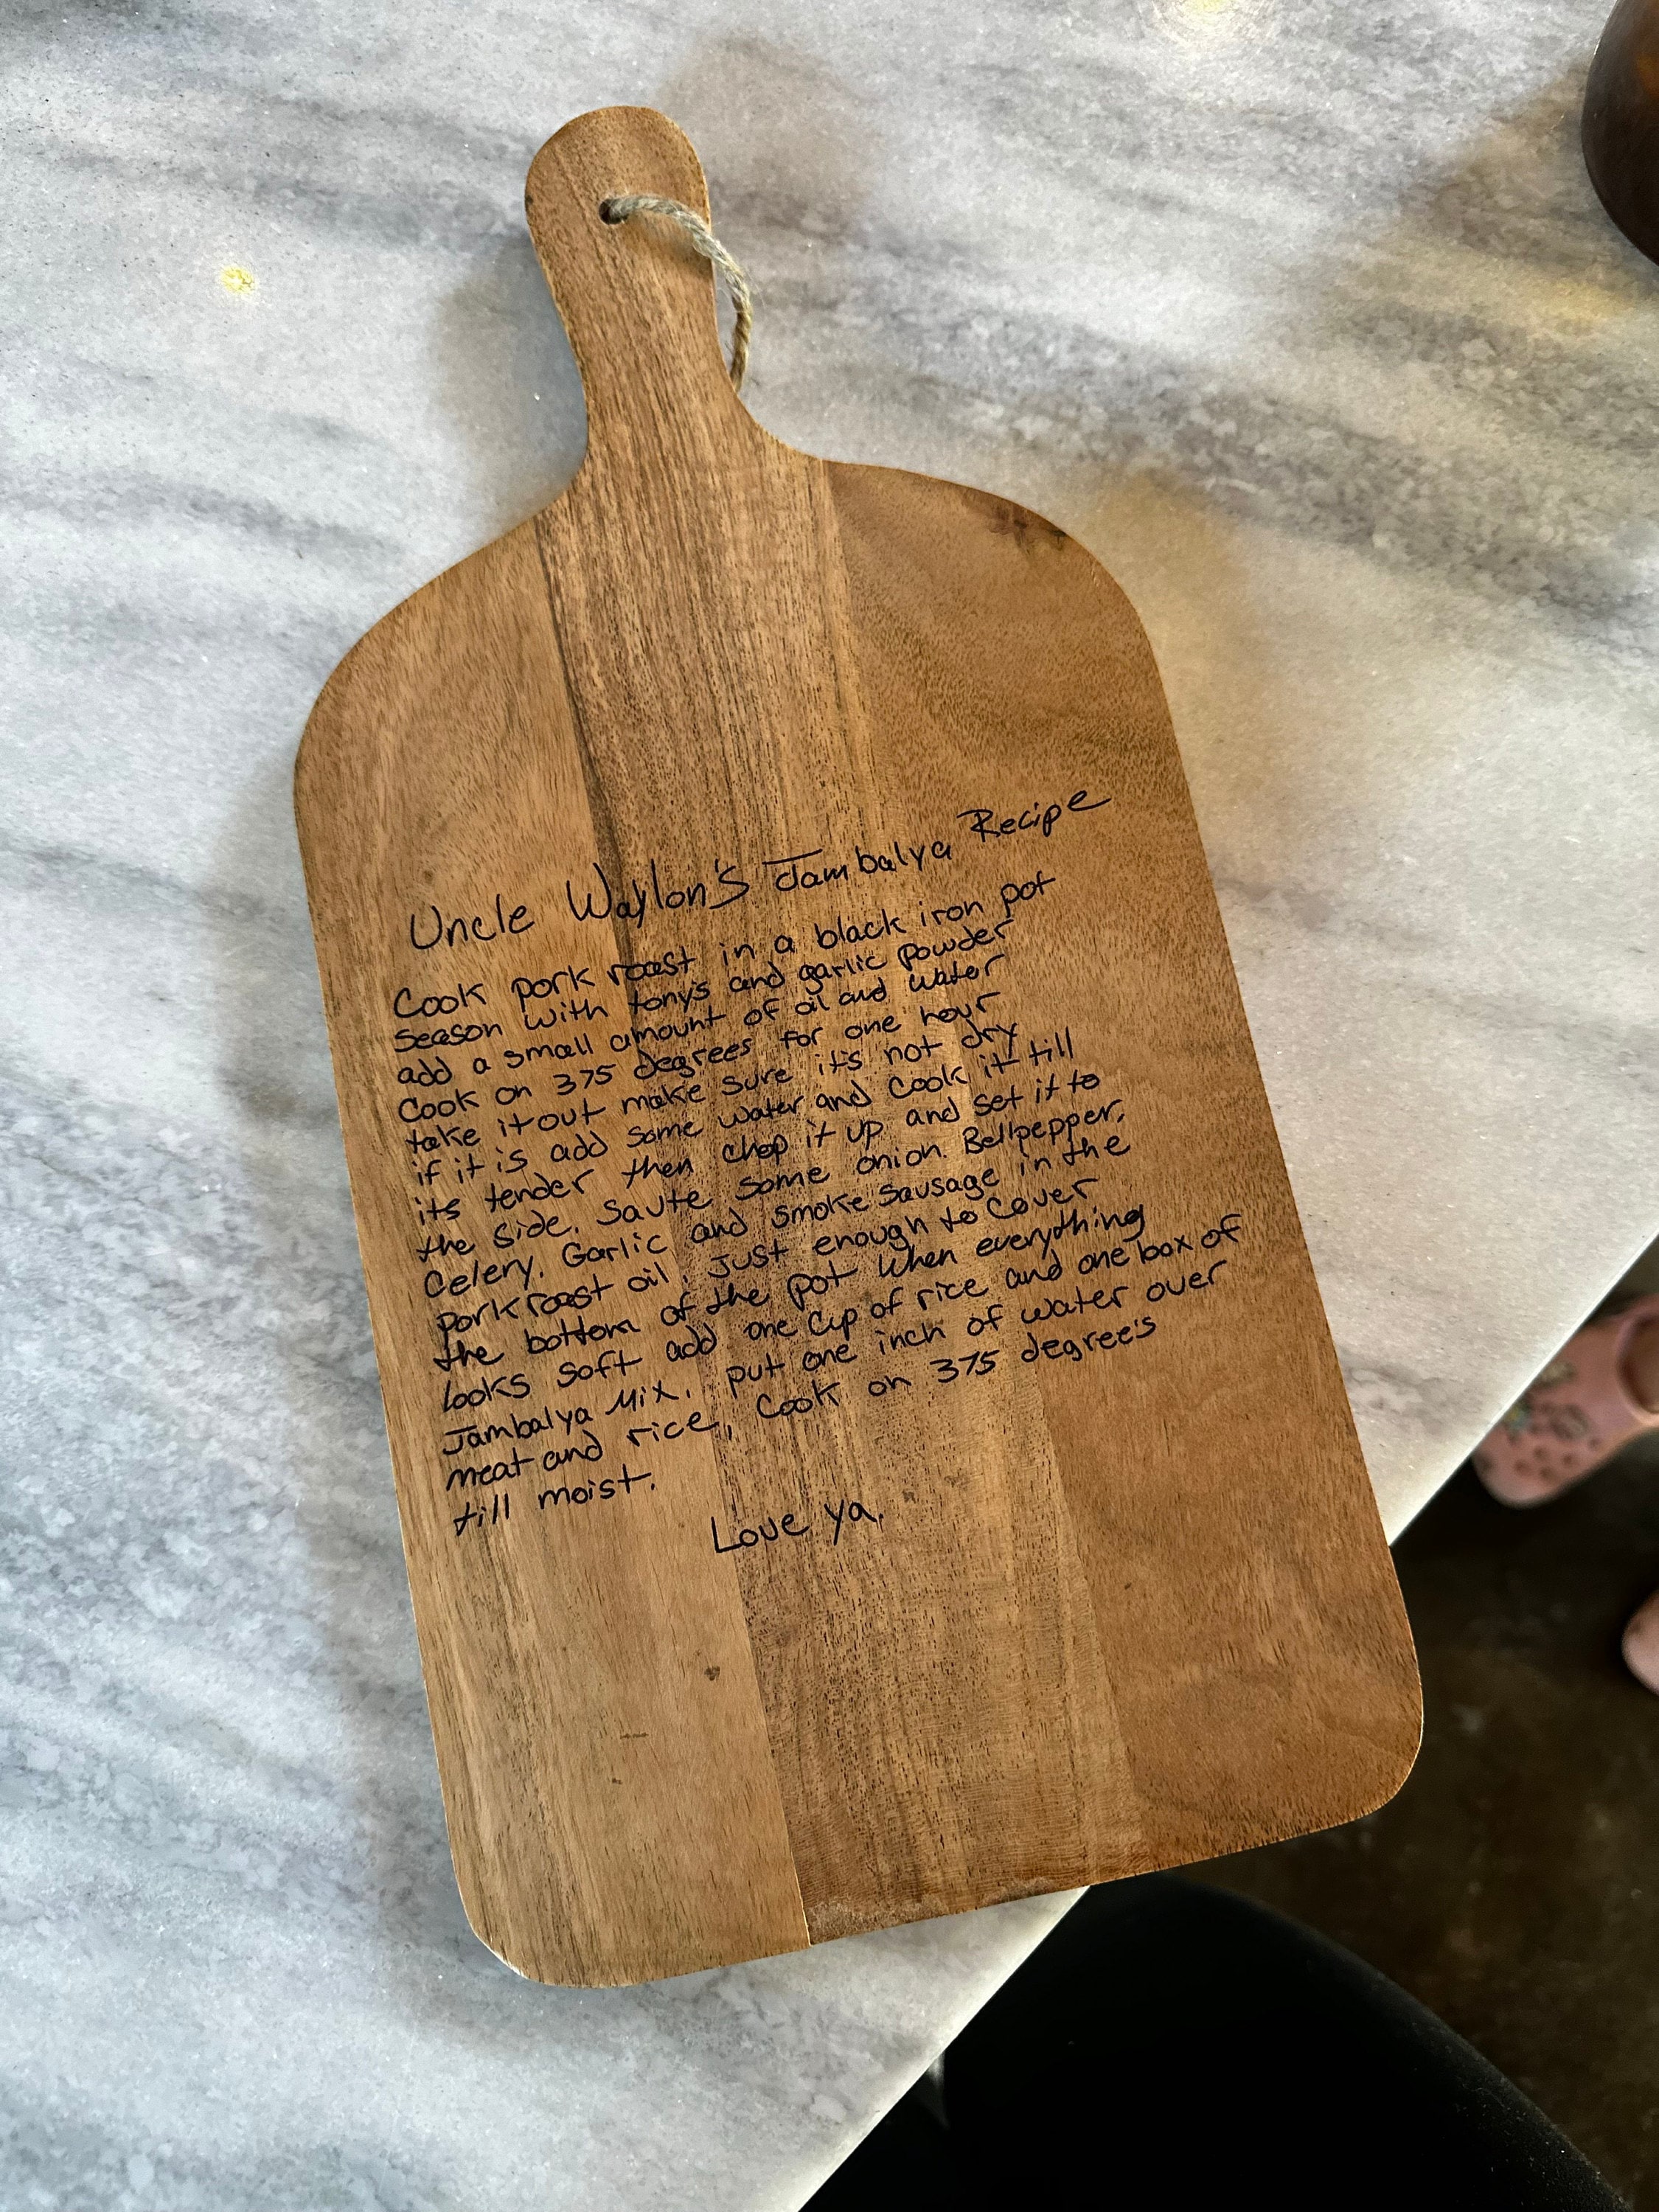 Uncle Waylon's Jambalya Recipe
Cook pork roast in a black iron pot
season with tony's and garlic powder
add a small amount of oil and water
Cook on 375 degrees for one hour
take it out make sure it's not dry
if it is add some water and cook it till
its tender then chop it up and set it to
the side. Saute some onion. Bellpepper,
Celery. Garlic and smoke sausage in the
pork roast oil, just enough to cover
the bottom of the pot when everything
looks soft add one cup of rice and one box of
Jambalya Mix. put one inch of water over
meat and rice, Cook on 375 degree's
till moist.
Love ya.